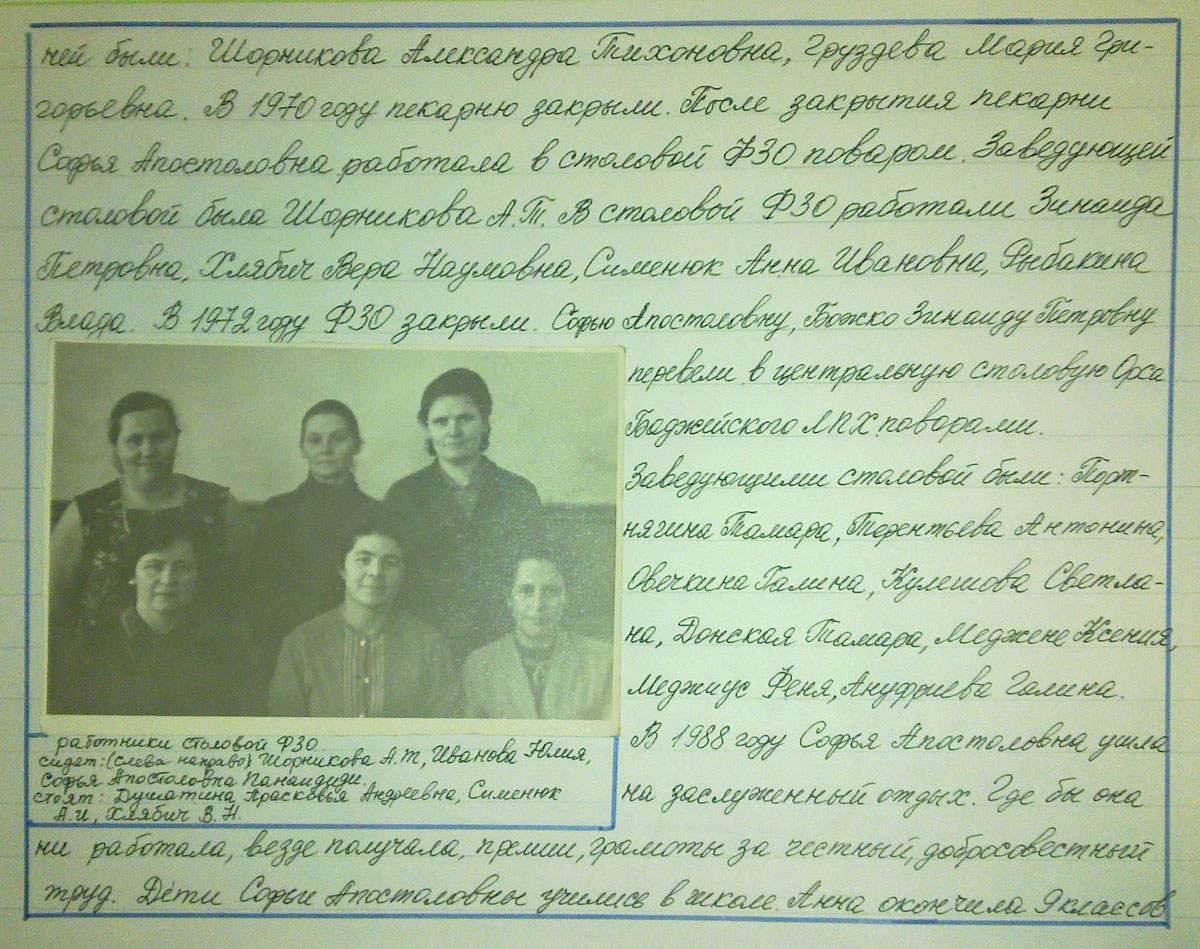 ней были: Шорникова Александра Тихоновна, Груздева Мария Гри-
горьевна. В 1970 году пекарню закрыли. После закрытия пекарни
Софья Апостоловна работала в столовой ФЗО поваром. Заведующей
столовой была Шорникова А.Т. В столовой ФЗО работали Зинаида
Петровна, Хлябич Вера Наумовна, Сименюк Анна Ивановна, Рыбакина
Влада. В 1972 году ФЗО закрыли. Софью Апостоловну, Божко Зинаиду Петровну
перевели в центральную столовую Орса
Баджейского ЛПХ поварами.
Заведующими столовой были: Порт-
нягина Тамара, Терентьева Антонина,
Овечкина Галина, Кулешова Светла-
на, Донская Тамара, Меджене Ксения,
Меджиус Феня, Ануфриева Галина.
В 1988 году Софья Апостоловна ушла
на заслуженный отдых. Где бы она
ни работала, везде получала, премии, грамоты за честный, добросовестный
труд. Дети Софьи Апостоловны учились в школе. Анна окончила 9 классов
работники столовой ФЗО.
сидят: (слева направо) Шорникова А.Т, Иванова Юлия,
Софья Апостоловна Панаидиди.
стоят: Душатина Прасковья Андреевна, Сименюк
А.И, Хлябич В.Н.